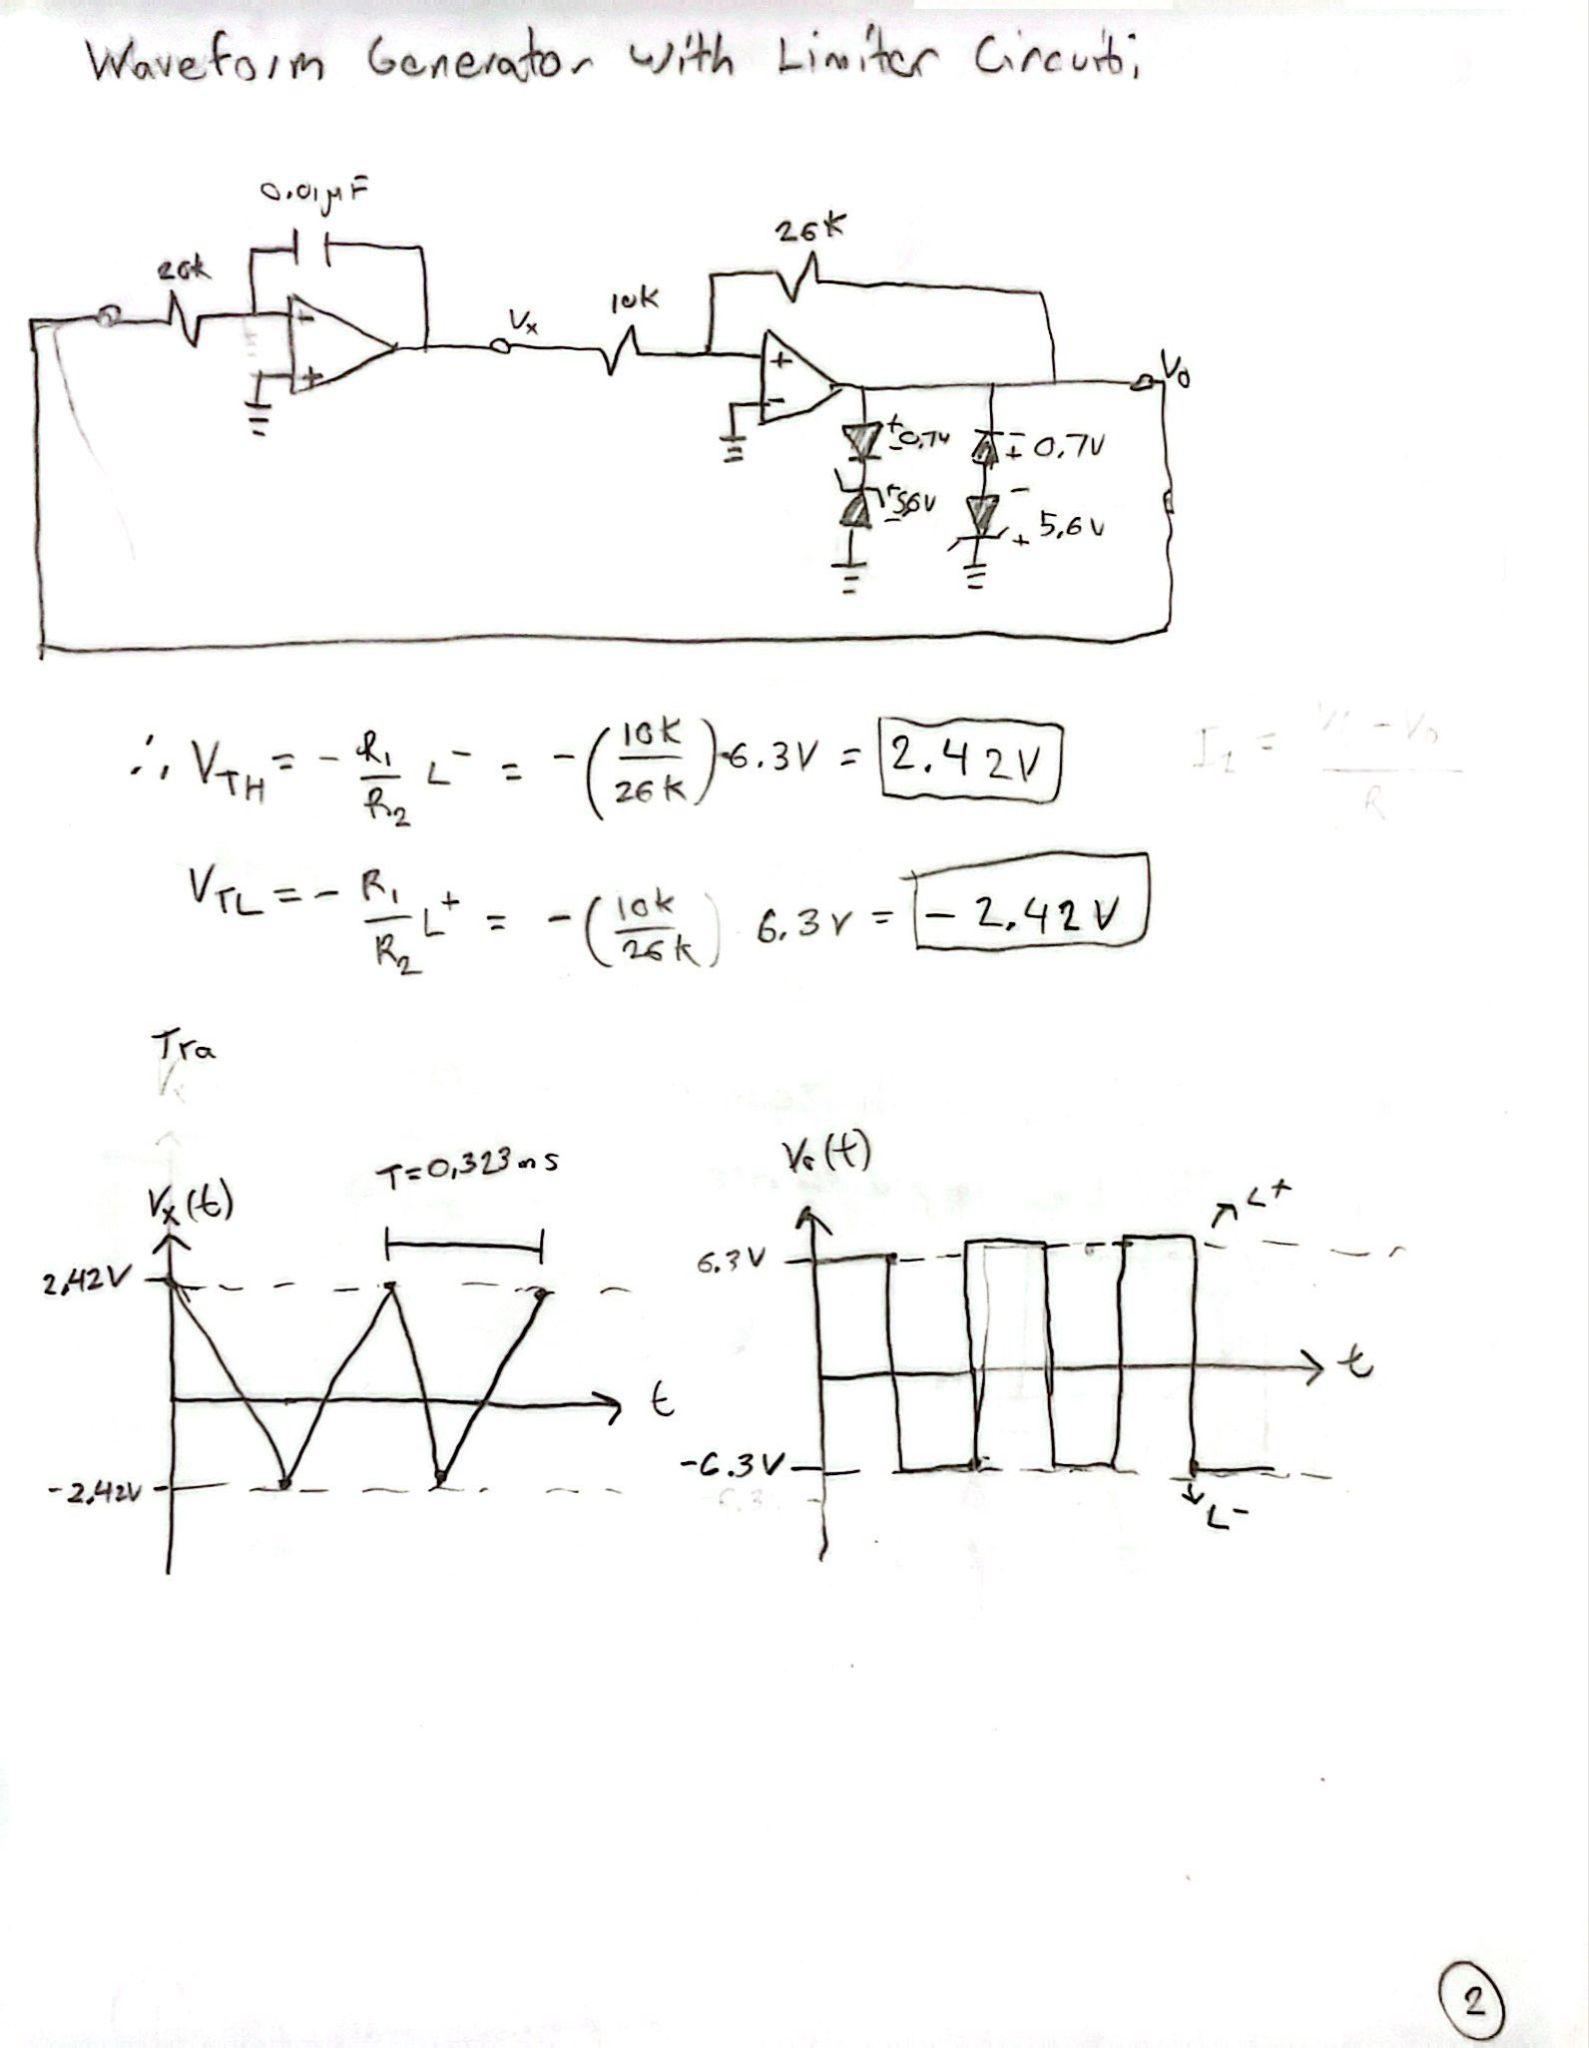 Waveform Generator with Limiter Circuit;
0.01µF
26K
20k
10k
Vx
Vo
+
+
-
+ 0.7V
-
- 0.7V
+
+ 5.6V
-
-
+ 5.6V
∴ VTH = - R1/R2 L⁻ = -(10K/26K) -6.3V = 2.42V
I1 = / R
VTL = - R1/R2 L⁺ = -(10k/26k) 6.3V = - 2.42V
Tra
Vx
T=0.323ms
Vx(t)
2.42V
t
-2.42V
Vo(t)
L+
6.3V
t
-6.3V
L-
2